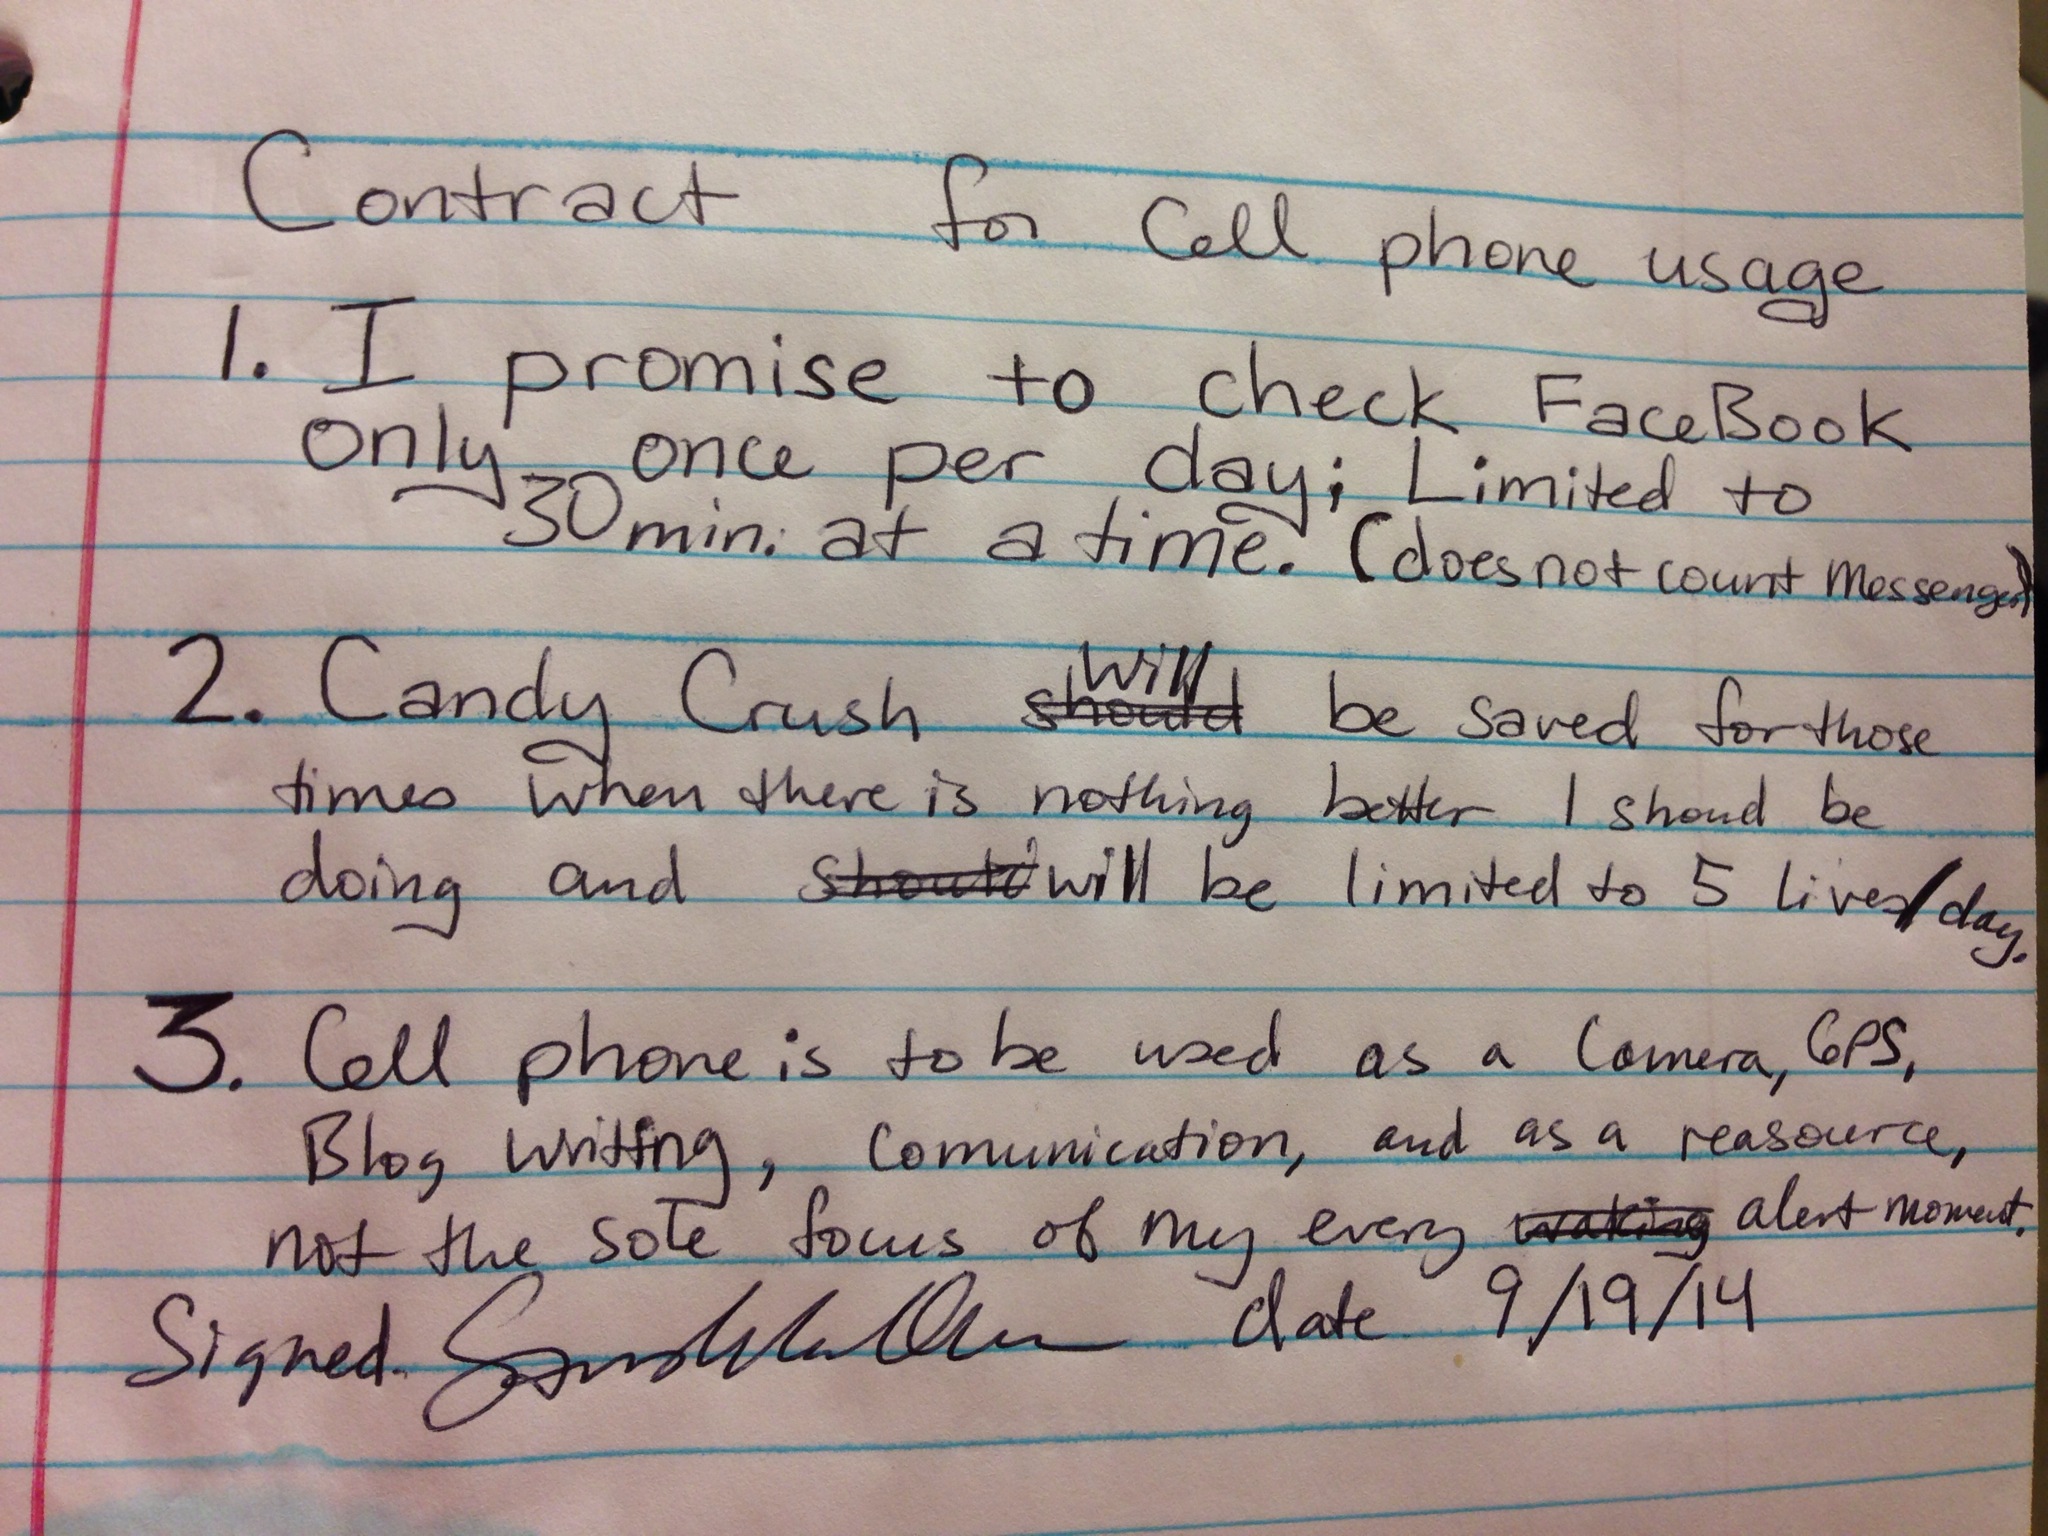 Contract for Cell phone usage
1. I promise to check FaceBook
only once per day; Limited to
30 min. at a time. (does not count Messenger)
2. Candy Crush ~~should~~ will be saved for those
times when there is nothing better I shoud be
doing and ~~should~~ will be limited to 5 lives/day.
3. Cell phone is to be used as a Camera, GPS,
Blog writting, Comunication, and as a reasource,
not the sole focus of my every ~~waking~~ alert moment.
Signed. date 9/19/14